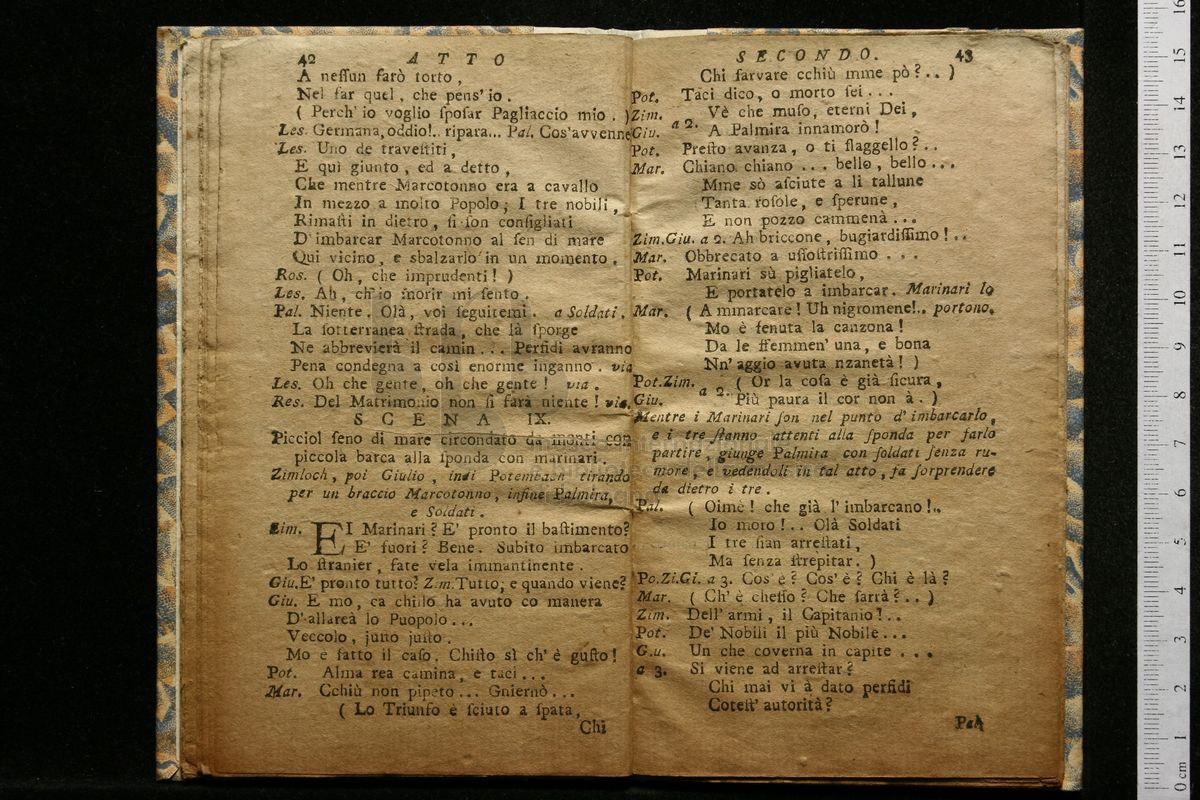 42 ATTO
A neſſun farò torto,
Nel far quel, che pens' io.
( Perch' io voglio ſpoſar Pagliaccio mio. )
Les. Germana, oddio!.. ripara... Pal. Cos'avvenne
Les. Uno de traveſtiti,
E quì giunto, ed a detto,
Che mentre Marcotonno era a cavallo
In mezzo a molto Popolo; I tre nobili,
Rimaſti in dietro, ſi ſon conſigliati
D'imbarcar Marcotonno al ſen di mare
Qui vicino, e sbalzarlo in un momento.
Ros. ( Oh, che imprudenti! )
Les. Ah, ch'io morir mi ſento.
Pal. Niente. Olà, voi ſeguitemi. a Soldati.
La ſotterranea ſtrada, che là ſporge
Ne abbrevierà il camin... Perfidi avranno
Pena condegna a così enorme inganno. via
Les. Oh che gente, oh che gente! via.
Res. Del Matrimonio non ſi farà niente! via.
SCENA IX.
Picciol ſeno di mare circondato da monti con
piccola barca alla ſponda con marinari.
Zimloch, poi Giulio, indi Potembach tirando
per un braccio Marcotonno, infine Palmira,
e Soldati.
Zim. EI Marinari? E' pronto il baſtimento?
E' fuori? Bene. Subito imbarcato
Lo ſtranier, fate vela immantinente.
Giu. E' pronto tutto? Zim. Tutto; e quando viene?
Giu. E mo, ca chillo ha avuto co manera
D'allareà lo Puopolo...
Veccolo, juſto juſto.
Mo e fatto il caſo. Chiſto sì ch' è guſto!
Pot. Alma rea camina, e taci...
Mar. Cchiù non pipeto... Gnierno...
( Lo Triunfo è ſciuto a ſpata,
Chi
SECONDO. 43
Chi ſarvare cchiù mme pò?.. )
Pot. Taci dico, o morto ſei...
Zim. Vè che muſo, eterni Dei,
Giu. a 2. A Palmira innamorò!
Pot. Preſto avanza, o ti flaggello?..
Mar. Chiano chiano... bello, bello...
Mme sò aſciute a li tallune
Tanta roſole, e ſperune,
E non pozzo cammenà...
Zim. Giu. a 2. Ah briccone, bugiardiſſimo!..
Mar. Obbrecato a uſſoſtriſſimo...
Pot. Marinari sù pigliatelo,
E portatelo a imbarcar. Marinari lo
Mar. ( Ammarcare! Uh nigromene!.. portono.
Mo è ſenuta la canzona!
Da le ffemmen' una, e bona
Nn' aggio avuta nzanetà! )
Pot. Zim. ( Or la coſa è già ſicura,
Giu. a 2. Più paura il cor non à. )
Mentre i Marinari ſon nel punto d' imbarcarlo,
e i tre ſtanno attenti alla ſponda per farlo
partire, giunge Palmira con ſoldati ſenza ru-
more, e vedendoli in tal atto, fa ſorprendere
da dietro i tre.
Pal. ( Oimè! che già l' imbarcano!..
Io moro!.. Olà Soldati
I tre ſian arreſtati,
Ma ſenza ſtrepitar. )
Po. Zi. Gi. a 3. Cos' è? Cos' è? Chi è là?
Mar. ( Ch' è cheſſo? Che ſarrà?.. )
Zim. Dell' armi, il Capitanio!..
Pot. De' Nobili il più Nobile...
Giu. Un che coverna in capite...
a 3. Si viene ad arreſtar?
Chi mai vi à dato perfidi
Coteſt' autorità?
Pal